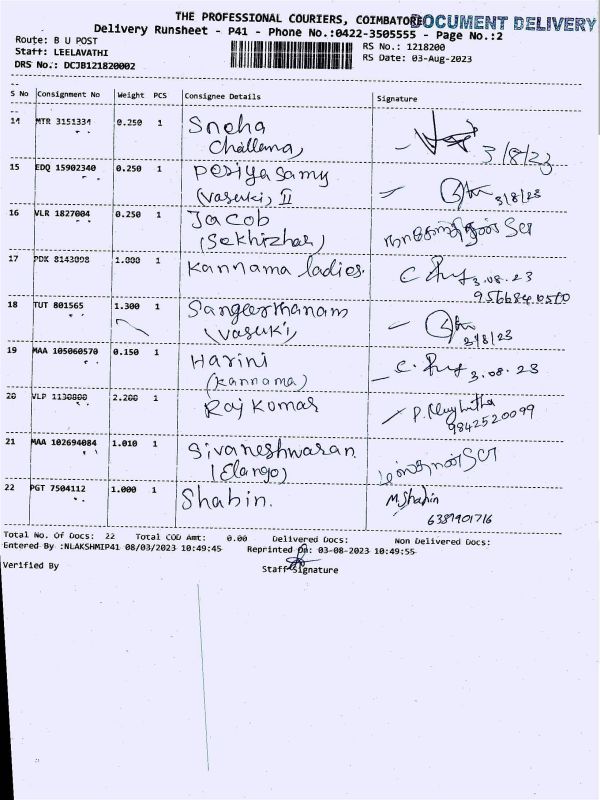 THE PROFESSIONAL COURIERS, COIMBATORE
DOCUMENT DELIVERY
Delivery Runsheet - P41 - Phone No.:0422-3505555 - Page No.:2
Route: B U POST
RS No.: 1218200
Staff: LEELAVATHI
RS Date: 03-Aug-2023
DRS No.: DCJB121820002
S No Consignment No Weight PCS Consignee Details Signature
14 MTR 3151334 0.250 1 Sneha
Chellama, 3/8/23
15 EDQ 15902340 0.250 1 Periyasamy
(Vasuki, II 3/8/23
16 VLR 1827004 0.250 1 Jacob
(Sekhizhar)
17 PDK 8143098 1.000 1 Kannama ladies.
3.08.23
18 TUT 801565 1.300 1 Sangeerthanam
(Vasuki, 3/8/23
19 MAA 105060570 0.150 1 Harini
(Kannama) 3.08.23
20 VLP 1130800 2.200 1 Raj Komar
9842520099
21 MAA 102694084 1.010 1 Sivaneshwaran
(Elango)
22 PGT 7504112 1.000 1 Shabin. M. Shabin
6389901716
Total No. Of Docs: 22 Total COD Amt: 0.00 Delivered Docs: Non Delivered Docs:
Entered By :NLAKSHMIP41 08/03/2023 10:49:45 Reprinted On: 03-08-2023 10:49:55
Verified By Staff Signature